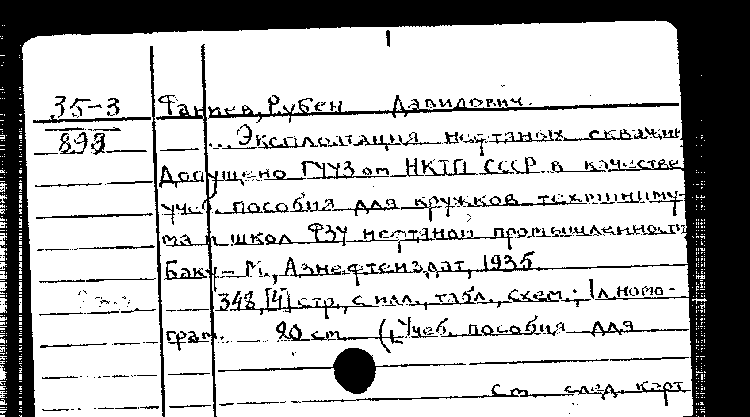 35-3 Фаниев, Рубен Давидович.
899 ... Эксплоатация нефтяных скважин
Допущено ГУУЗ'ом НКТП СССР в качестве
учеб. пособия для кружков техминиму-
ма и школ ФЗУ нефтяной промышленности
Баку - М., Азнефтеиздат, 1935.
348, [4] стр., с илл., табл., схем.; 1 л. номо-
грам. 20 см. (Учеб. пособия для
См. след. карт